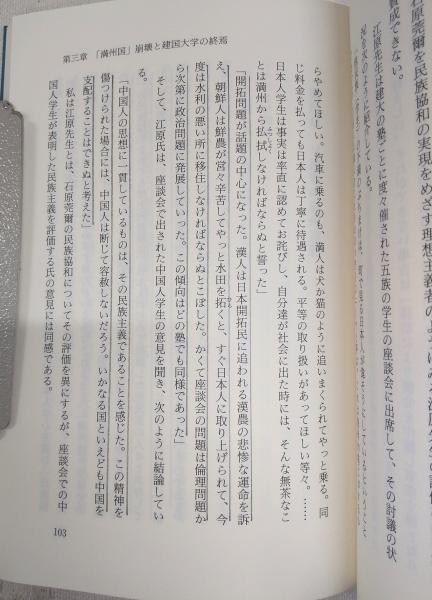 石原莞爾を民族協和の実現をめざす理想主義者の
賛成できない。
江原先生は建大の塾ごとに度々催された五族の学生の座談会に出席して、その討議の状
らやめてほしい。汽車に乗るのも、満人は犬か猫のように追いまくられてやっと乗る。同
じ料金を払っても日本人は丁寧に待遇される。平等の取り扱いがあってほしい等々。……
日本人学生は事実は率直に認めてお詫びし、自分達が社会に出た時には、そんな無茶なこ
とは満州から払拭しなければならぬと誓った」
ふっしょく
「開拓問題が話題の中心になった。漢人は日本開拓民に追われる漢農の悲惨な運命を訴
え、朝鮮人は鮮農が営々辛苦してやっと水田を拓くと、すぐ日本人に取り上げられて、今
度は水利の悪い所に移住しなければならぬとこぼした。かくて座談会の問題は倫理問題か
ら次第に政治問題に発展していった。この傾向はどの塾でも同様であった」
そして、江原氏は、座談会で出された中国人学生の意見を聞き、次のように結論してい
る。
「中国人の思想に一貫しているものは、その民族主義であることを感じた。この精神を
傷つけられた場合には、中国人は断じて容赦しないだろう。いかなる国といえども中国を
支配することはできぬと考えた」
私は江原先生とは、石原莞爾の民族協和についてその評価を異にするが、座談会での中
国人学生が表明した民族主義を評価する氏の意見には同感である。
第三章 「満州国」崩壊と建国大学の終焉
103